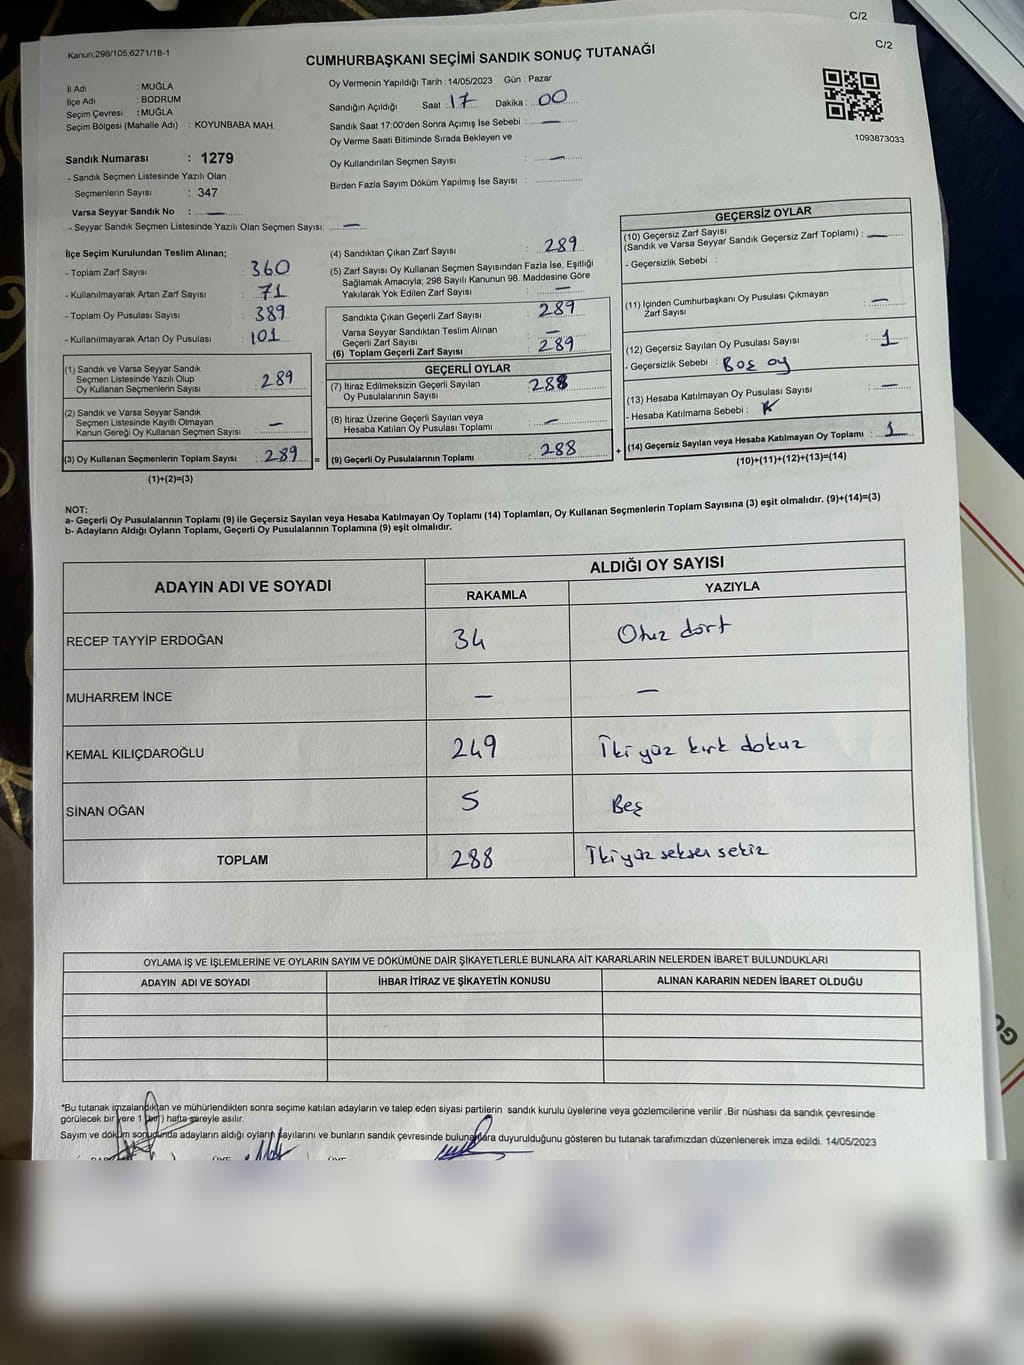 C/2
C/2
Kanun:298/105,6271/18-1
CUMHURBAŞKANI SEÇİMİ SANDIK SONUÇ TUTANAĞI
İl Adı : MUĞLA
İlçe Adı : BODRUM
Seçim Çevresi : MUĞLA
Seçim Bölgesi (Mahalle Adı) : KOYUNBABA MAH.
Oy Vermenin Yapıldığı Tarih : 14/05/2023 Gün : Pazar
Sandığın Açıldığı Saat : 17 Dakika : 00
Sandık Saat 17:00'den Sonra Açımış İse Sebebi : —
Oy Verme Saati Bitiminde Sırada Bekleyen ve
Oy Kullandırılan Seçmen Sayısı : —
Birden Fazla Sayım Döküm Yapılmış İse Sayısı :
1093873033
Sandık Numarası : 1279
- Sandık Seçmen Listesinde Yazılı Olan
Seçmenlerin Sayısı : 347
Varsa Seyyar Sandık No : —
- Seyyar Sandık Seçmen Listesinde Yazılı Olan Seçmen Sayısı: —
İlçe Seçim Kurulundan Teslim Alınan;
- Toplam Zarf Sayısı : 360
- Kullanılmayarak Artan Zarf Sayısı : 71
- Toplam Oy Pusulası Sayısı : 389
- Kullanılmayarak Artan Oy Pusulası : 101
(1) Sandık ve Varsa Seyyar Sandık
Seçmen Listesinde Yazılı Olup
Oy Kullanan Seçmenlerin Sayısı : 289
(2) Sandık ve Varsa Seyyar Sandık
Seçmen Listesinde Kayıtlı Olmayan
Kanun Gereği Oy Kullanan Seçmen Sayısı : —
(3) Oy Kullanan Seçmenlerin Toplam Sayısı : 289 =
(1)+(2)=(3)
(4) Sandıktan Çıkan Zarf Sayısı : 289
(5) Zarf Sayısı Oy Kullanan Seçmen Sayısından Fazla İse, Eşitliği
Sağlamak Amacıyla; 298 Sayılı Kanunun 98. Maddesine Göre
Yakılarak Yok Edilen Zarf Sayısı : —
Sandıkta Çıkan Geçerli Zarf Sayısı : 289
Varsa Seyyar Sandıktan Teslim Alınan
Geçerli Zarf Sayısı : —
(6) Toplam Geçerli Zarf Sayısı : 289
GEÇERLİ OYLAR
(7) İtiraz Edilmeksizin Geçerli Sayılan
Oy Pusulalarının Sayısı : 288
(8) İtiraz Üzerine Geçerli Sayılan veya
Hesaba Katılan Oy Pusulası Toplamı : —
(9) Geçerli Oy Pusulalarının Toplamı : 288 +
GEÇERSİZ OYLAR
(10) Geçersiz Zarf Sayısı
(Sandık ve Varsa Seyyar Sandık Geçersiz Zarf Toplamı) : —
- Geçersizlik Sebebi :
(11) İçinden Cumhurbaşkanı Oy Pusulası Çıkmayan
Zarf Sayısı : —
(12) Geçersiz Sayılan Oy Pusulası Sayısı : 1
- Geçersizlik Sebebi : Boş oy
(13) Hesaba Katılmayan Oy Pusulası Sayısı : —
- Hesaba Katılmama Sebebi :
(14) Geçersiz Sayılan veya Hesaba Katılmayan Oy Toplamı : 1
(10)+(11)+(12)+(13)=(14)
NOT:
a- Geçerli Oy Pusulalarının Toplamı (9) ile Geçersiz Sayılan veya Hesaba Katılmayan Oy Toplamı (14) Toplamları, Oy Kullanan Seçmenlerin Toplam Sayısına (3) eşit olmalıdır. (9)+(14)=(3)
b- Adayların Aldığı Oyların Toplamı, Geçerli Oy Pusulalarının Toplamına (9) eşit olmalıdır.
ADAYIN ADI VE SOYADI
ALDIĞI OY SAYISI
RAKAMLA YAZIYLA
RECEP TAYYİP ERDOĞAN 34 Otuz dört
MUHARREM İNCE — —
KEMAL KILIÇDAROĞLU 249 İki yüz kırk dokuz
SİNAN OĞAN 5 Beş
TOPLAM 288 İki yüz seksen sekiz
OYLAMA İŞ VE İŞLEMLERİNE VE OYLARIN SAYIM VE DÖKÜMÜNE DAİR ŞİKAYETLERLE BUNLARA AİT KARARLARIN NELERDEN İBARET BULUNDUKLARI
ADAYIN ADI VE SOYADI İHBAR İTİRAZ VE ŞİKAYETİN KONUSU ALINAN KARARIN NEDEN İBARET OLDUĞU
*Bu tutanak imzalandıktan ve mühürlendikten sonra seçime katılan adayların ve talep eden siyasi partilerin sandık kurulu üyelerine veya gözlemcilerine verilir .Bir nüshası da sandık çevresinde
görülecek bir yere 1 (bir) hafta süreyle asılır.
Sayım ve döküm sonucunda adayların aldığı oyların sayılarını ve bunların sandık çevresinde bulunanlara duyurulduğunu gösteren bu tutanak tarafımızdan düzenlenerek imza edildi. 14/05/2023